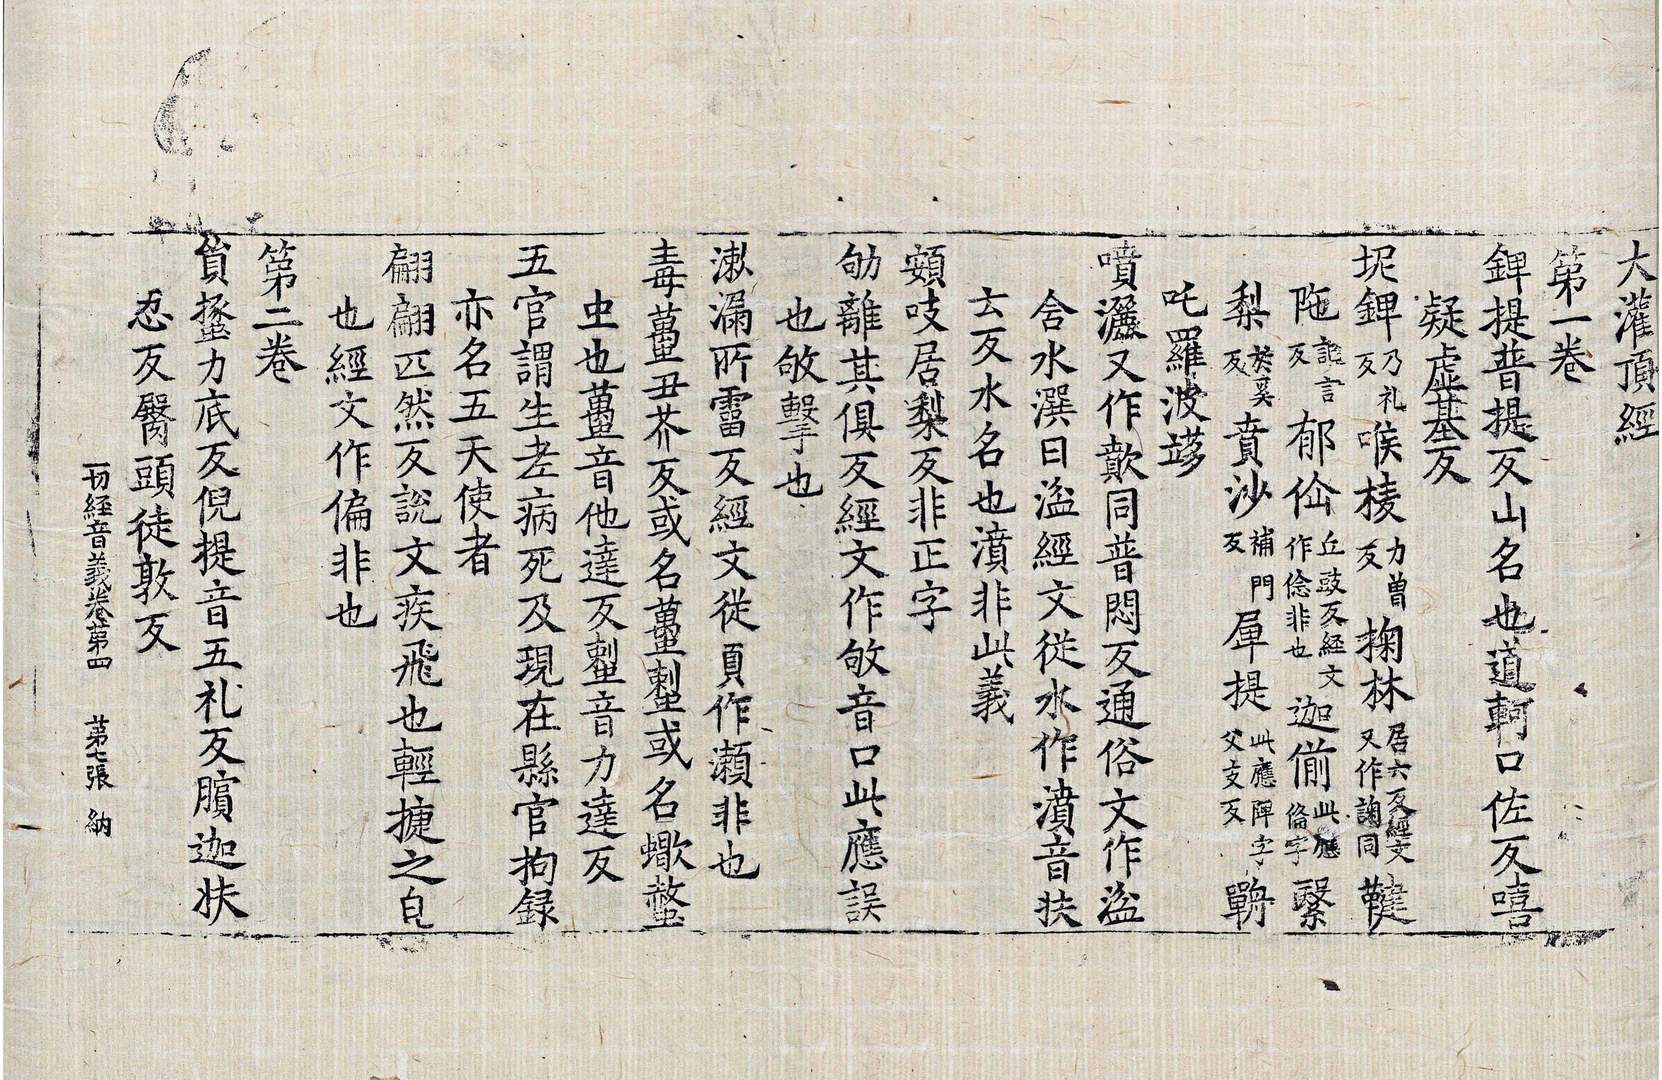 大灌頂經
第一卷
錍提普提反山名也道軻口佐反嘻
疑虛基反
坭錍乃礼反喉棱力曾反掬林居六反經文又作諊同鞬
陁詑言反郁伱丘豉反經文作惗非也迦偂此應偹字繄
梨於奚反賁沙補門反厗提此應陴字父支反鸜
吒羅波㙤
噴灑又作歕同普悶反通俗文作湓
含水潠曰湓經文從水作濆音扶
云反水名也濆非此義
頞吱居梨反非正字
劬離其俱反經文作敂音口此應誤
也敂擊也
漱漏所霤反經文從頁作瀬非也
毒蠆丑芥反或名蠆𧍃或名蠍螫
虫也蠆音他達反𧍃音力達反
五官謂生老病死及現在縣官拘録
亦名五天使者
翩翩匹然反說文疾飛也輕揵之皃
也經文作偏非也
第二卷
貟蟸力底反倪提音五礼反臏迦扶
忍反臋頭徒敦反
一切經音義卷第四　第七張　納